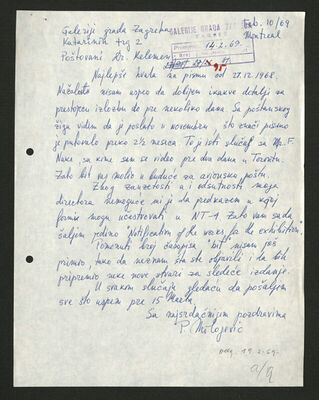 Galeriji grada Zagreba
Feb. 10/69
Katarinin trg 2
Montreal
GALERIJE GRADA ZAGREBA
ZAGREB
Primljeno: 14.2.69.
95
Poštovani Dr. Kelemen
Najlepša hvala na pismu od 27.12.1968.
Nažalost nisam uspeo da dobijem ikakve detalje za
predstojeću izložbu do pre nekoliko dana. Sa poštanskog
žiga vidim da je poslato u novembru što znači pismo
je putovalo preko 2½ meseca. To je isti slučaj sa Mr. F.
Nake, sa kime sam se video pre dva dana u Torontu.
Zato bih Vas molio u buduće za avionsku poštu.
Zbog zauzetosti a i odsutnosti moga
direktora nemoguće mi je da predkazem u kojoj
formi mogu učestvovati u NT-4. Zato Vam sada
šaljem jedino "Notification of the works for the exhibition"
Pomenuti broj časopisa "bit" nisam još
primio tako da neznam šta ste objavili i da bih
pripremio neke nove stvari za sledeće izdanje.
U svakom slučaju gledaću da pošaljem
sve što uspem pre 15 Marta.
Sa najsrdačnijim pozdravima
P. Milojević
odg. 19.2.69.
a/q